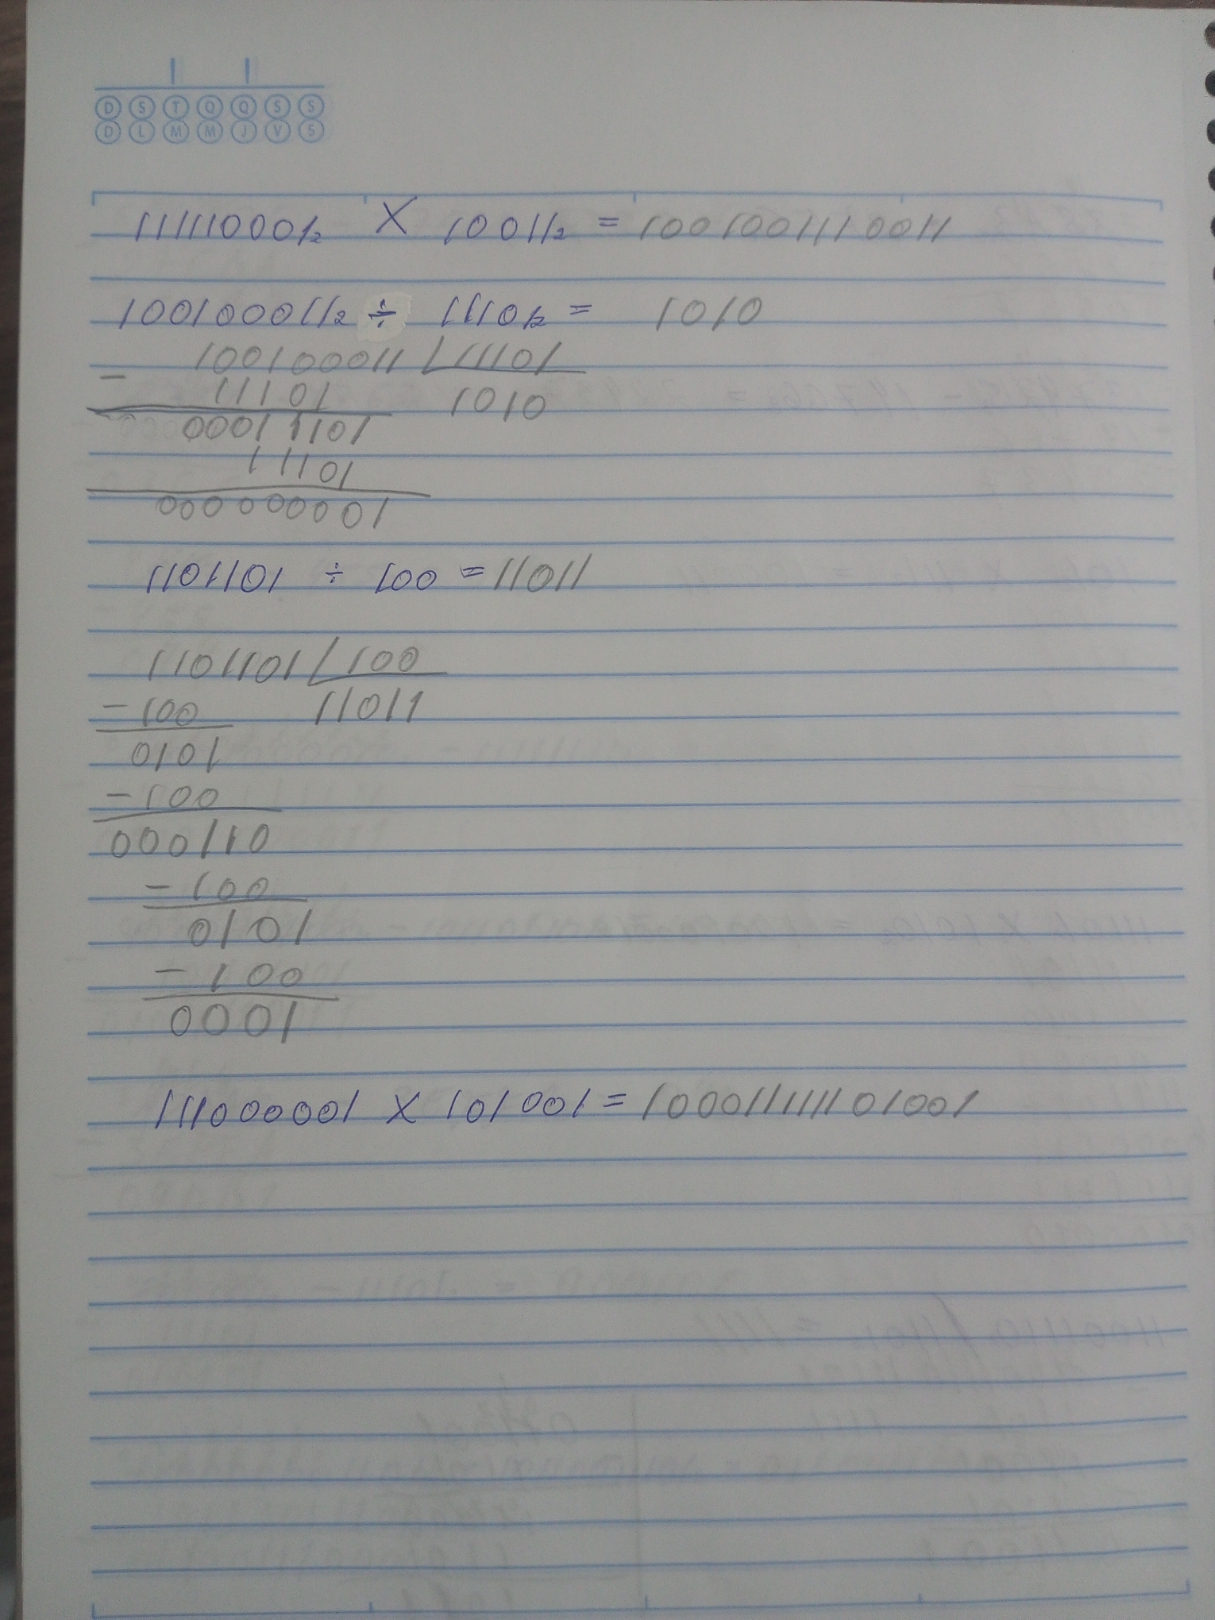 D S T Q Q S S
D L M M J V S
111110001₂ X 10011₂ = 1001001110011
100100011₂ ÷ 11101₂ = 1010
100100011 11101
- 11101 1010
00011101
11101
000000001
1101101 ÷ 100 = 11011
1101101 100
- 100 11011
0101
- 100
000110
- 100
0101
- 100
0001
111000001 X 101001 = 100011111101001